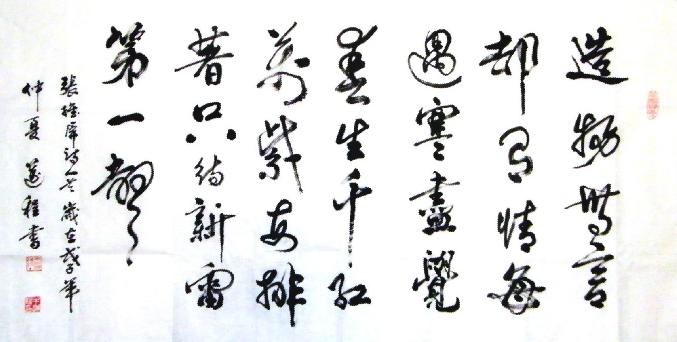 造物無言
却有情每
遇寒盡覺
春生千紅
萬紫安排
著只待新雷
第一聲
張維屏詩一首歲在戊子年
仲夏程書